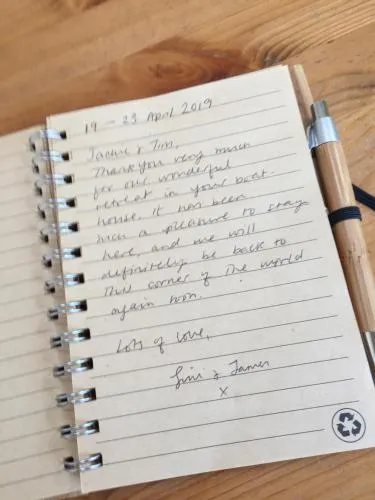 19 - 23 April 2019
Jackie & Tim,
Thank you very much
for our wonderful
retreat in your boat
house, it has been
such a pleasure to stay
here, and we will
definitely be back to
this corner of the world
again soon.
Lots of love,
& James
x